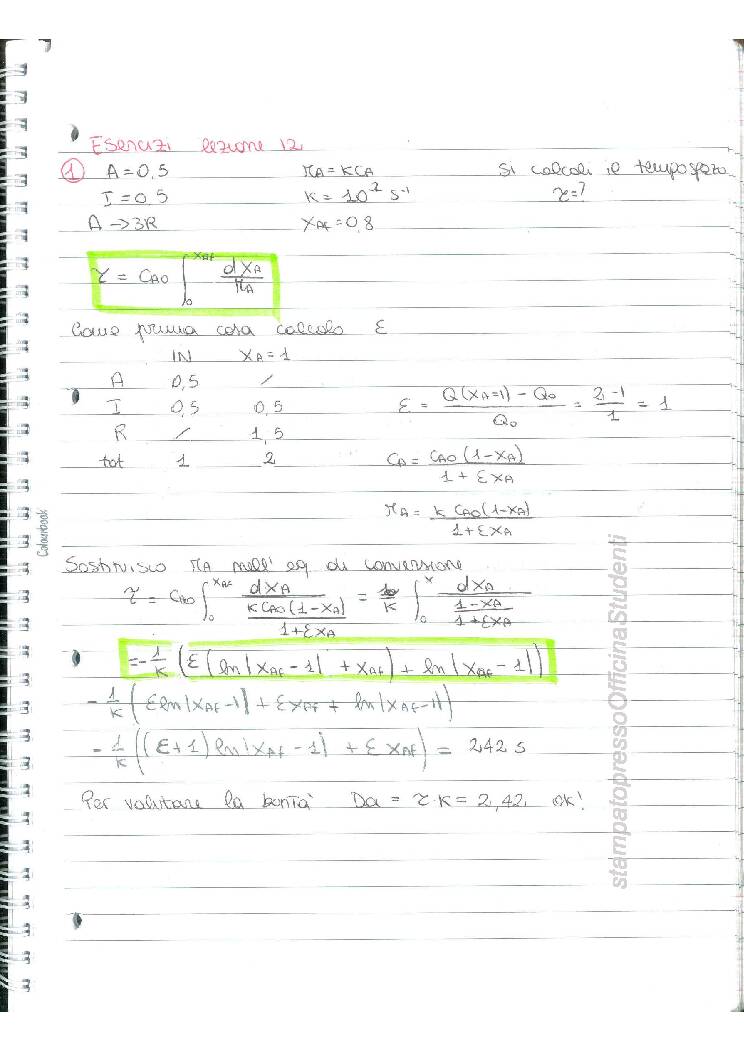 Esercizi lezione 12
① A = 0,5 r_A = k C_A Si calcoli il tempo spazio
I = 0,5 k = 10^-2 s^-1 τ = ?
A → 3R X_Af = 0,8
τ = C_A0 ∫_0^{X_Af} dX_A / r_A
Come prima cosa calcolo ε
IN X_A = 1
A 0,5 /
I 0,5 0,5 ε = (Q(X_A=1) - Q_0) / Q_0 = (2-1) / 1 = 1
R / 1,5
tot 1 2 C_A = C_A0 (1-X_A) / (1 + εX_A)
r_A = k C_A0 (1-X_A) / (1+εX_A)
Sostituisco r_A nell' eq di conversione
τ = C_A0 ∫_0^{X_Af} dX_A / (k C_A0 (1-X_A) / (1+εX_A)) = 1/k ∫_0^X dX_A / ((1-X_A) / (1+εX_A))
= -1/k (ε (ln|X_Af - 1| + X_Af) + ln|X_Af - 1|)
- 1/k (ε ln|X_Af - 1| + εX_Af + ln|X_Af - 1|)
- 1/k ((ε+1) ln|X_Af - 1| + ε X_Af) = 242 s
Per valutare la bontà Da = τ·k = 2,42 ok!
Colourbook
stampatopressoOfficinaStudenti